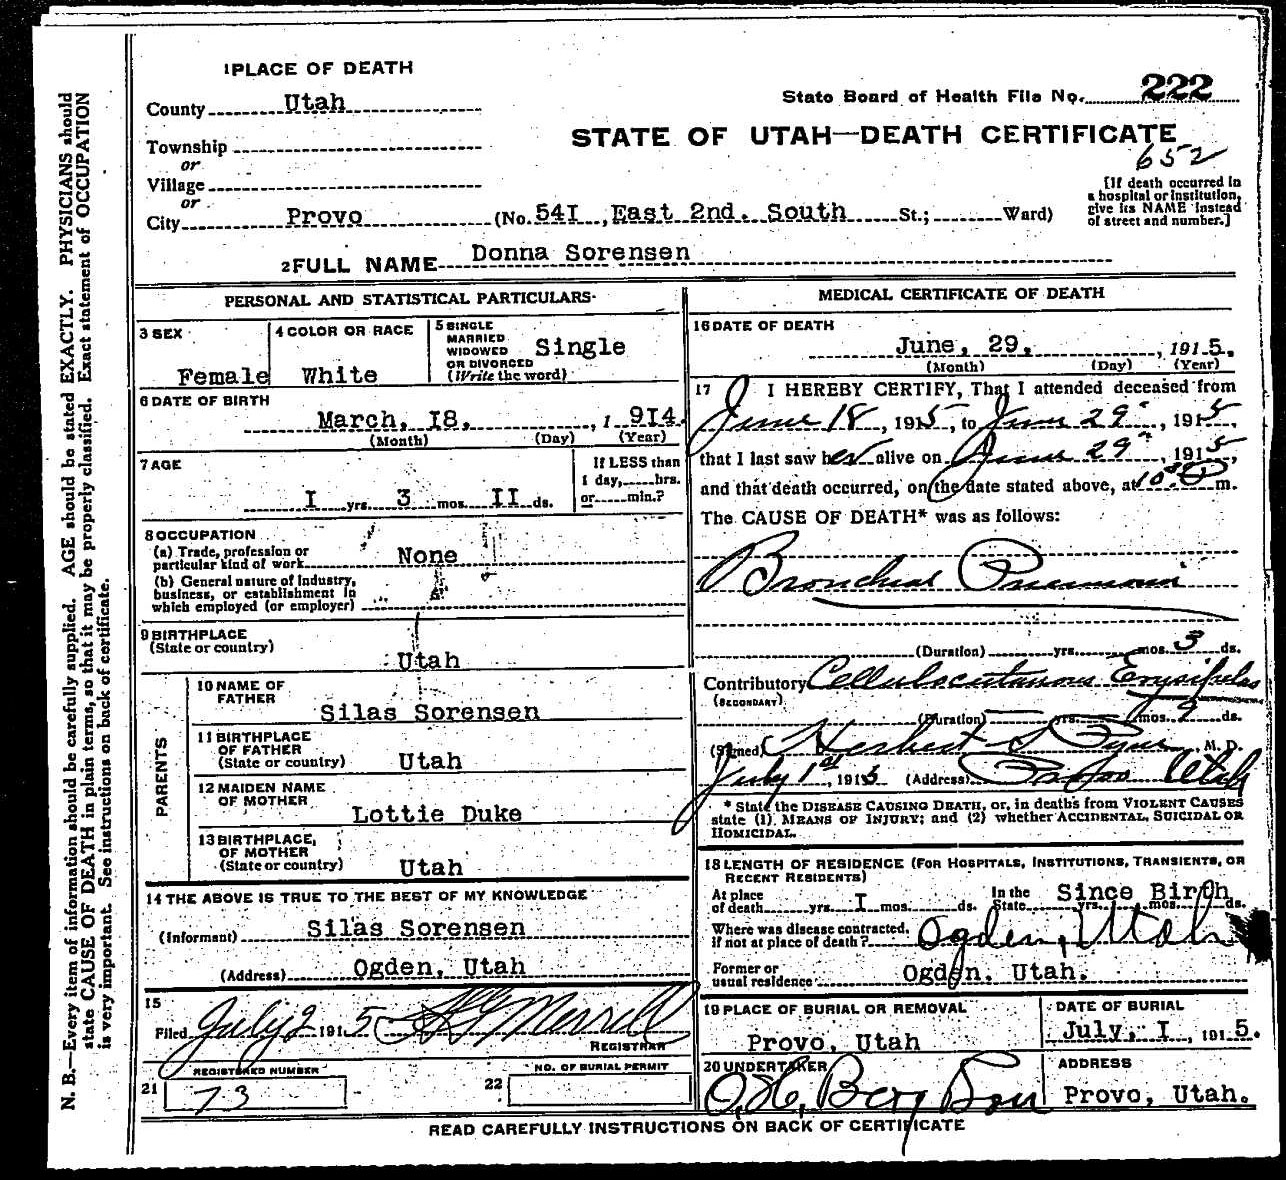 1 PLACE OF DEATH
County Utah
State Board of Health File No. 222
STATE OF UTAH—DEATH CERTIFICATE
652
Township
or
Village
or
City Provo (No. 54I, East 2nd. South St.; Ward)
[If death occurred in
a hospital or institution,
give its NAME instead
of street and number.]
2 FULL NAME Donna Sorensen
PERSONAL AND STATISTICAL PARTICULARS
3 SEX
Female
4 COLOR OR RACE
White
5 SINGLE
MARRIED
WIDOWED
OR DIVORCED
(Write the word)
Single
6 DATE OF BIRTH
March, I8, 1 914.
(Month) (Day) (Year)
7 AGE
I yrs. 3 mos. II ds.
If LESS than
1 day, hrs.
or min.?
8 OCCUPATION
(a) Trade, profession or
particular kind of work None
(b) General nature of Industry,
business, or establishment in
which employed (or employer)
9 BIRTHPLACE
(State or country)
Utah
PARENTS
10 NAME OF
FATHER
Silas Sorensen
11 BIRTHPLACE
OF FATHER
(State or country) Utah
12 MAIDEN NAME
OF MOTHER
Lottie Duke
13 BIRTHPLACE,
OF MOTHER
(State or country) Utah
14 THE ABOVE IS TRUE TO THE BEST OF MY KNOWLEDGE
(Informant) Silas Sorensen
(Address) Ogden, Utah
15
Filed July 2 1915 Merrill
REGISTRAR
REGISTERED NUMBER
21 73
NO. OF BURIAL PERMIT
22
MEDICAL CERTIFICATE OF DEATH
16 DATE OF DEATH
June, 29, , 1915.
(Month) (Day) (Year)
17 I HEREBY CERTIFY, That I attended deceased from
June 18, 1915, to June 29", 1915,
that I last saw her alive on June 29", 1915,
and that death occurred, on the date stated above, at 10 P m.
The CAUSE OF DEATH* was as follows:
Bronchial Pneumonia
(Duration) yrs. mos. 3 ds.
Contributory Cellulocutaneous Erysipelas
(SECONDARY)
(Duration) yrs. mos. 9 ds.
(Signed) Herbert S Pyne M. D.
July 1st, 1915 (Address) Provo Utah
* State the DISEASE CAUSING DEATH, or, in deaths from VIOLENT CAUSES
state (1) MEANS OF INJURY; and (2) whether ACCIDENTAL, SUICIDAL OR
HOMICIDAL.
18 LENGTH OF RESIDENCE (FOR HOSPITALS, INSTITUTIONS, TRANSIENTS, OR
RECENT RESIDENTS)
At place
of death yrs. I mos. ds.
In the
State Since Birth yrs. mos. ds.
Where was disease contracted,
if not at place of death? Ogden, Utah
Former or
usual residence Ogden. Utah.
19 PLACE OF BURIAL OR REMOVAL
Provo, Utah
DATE OF BURIAL
July, I , 1915.
20 UNDERTAKER
O. H. Berg Son
ADDRESS
Provo, Utah.
READ CAREFULLY INSTRUCTIONS ON BACK OF CERTIFICATE
N. B.—Every item of information should be carefully supplied. AGE should be stated EXACTLY. PHYSICIANS should
state CAUSE OF DEATH in plain terms, so that it may be properly classified. Exact statement of OCCUPATION
is very important. See instructions on back of certificate.